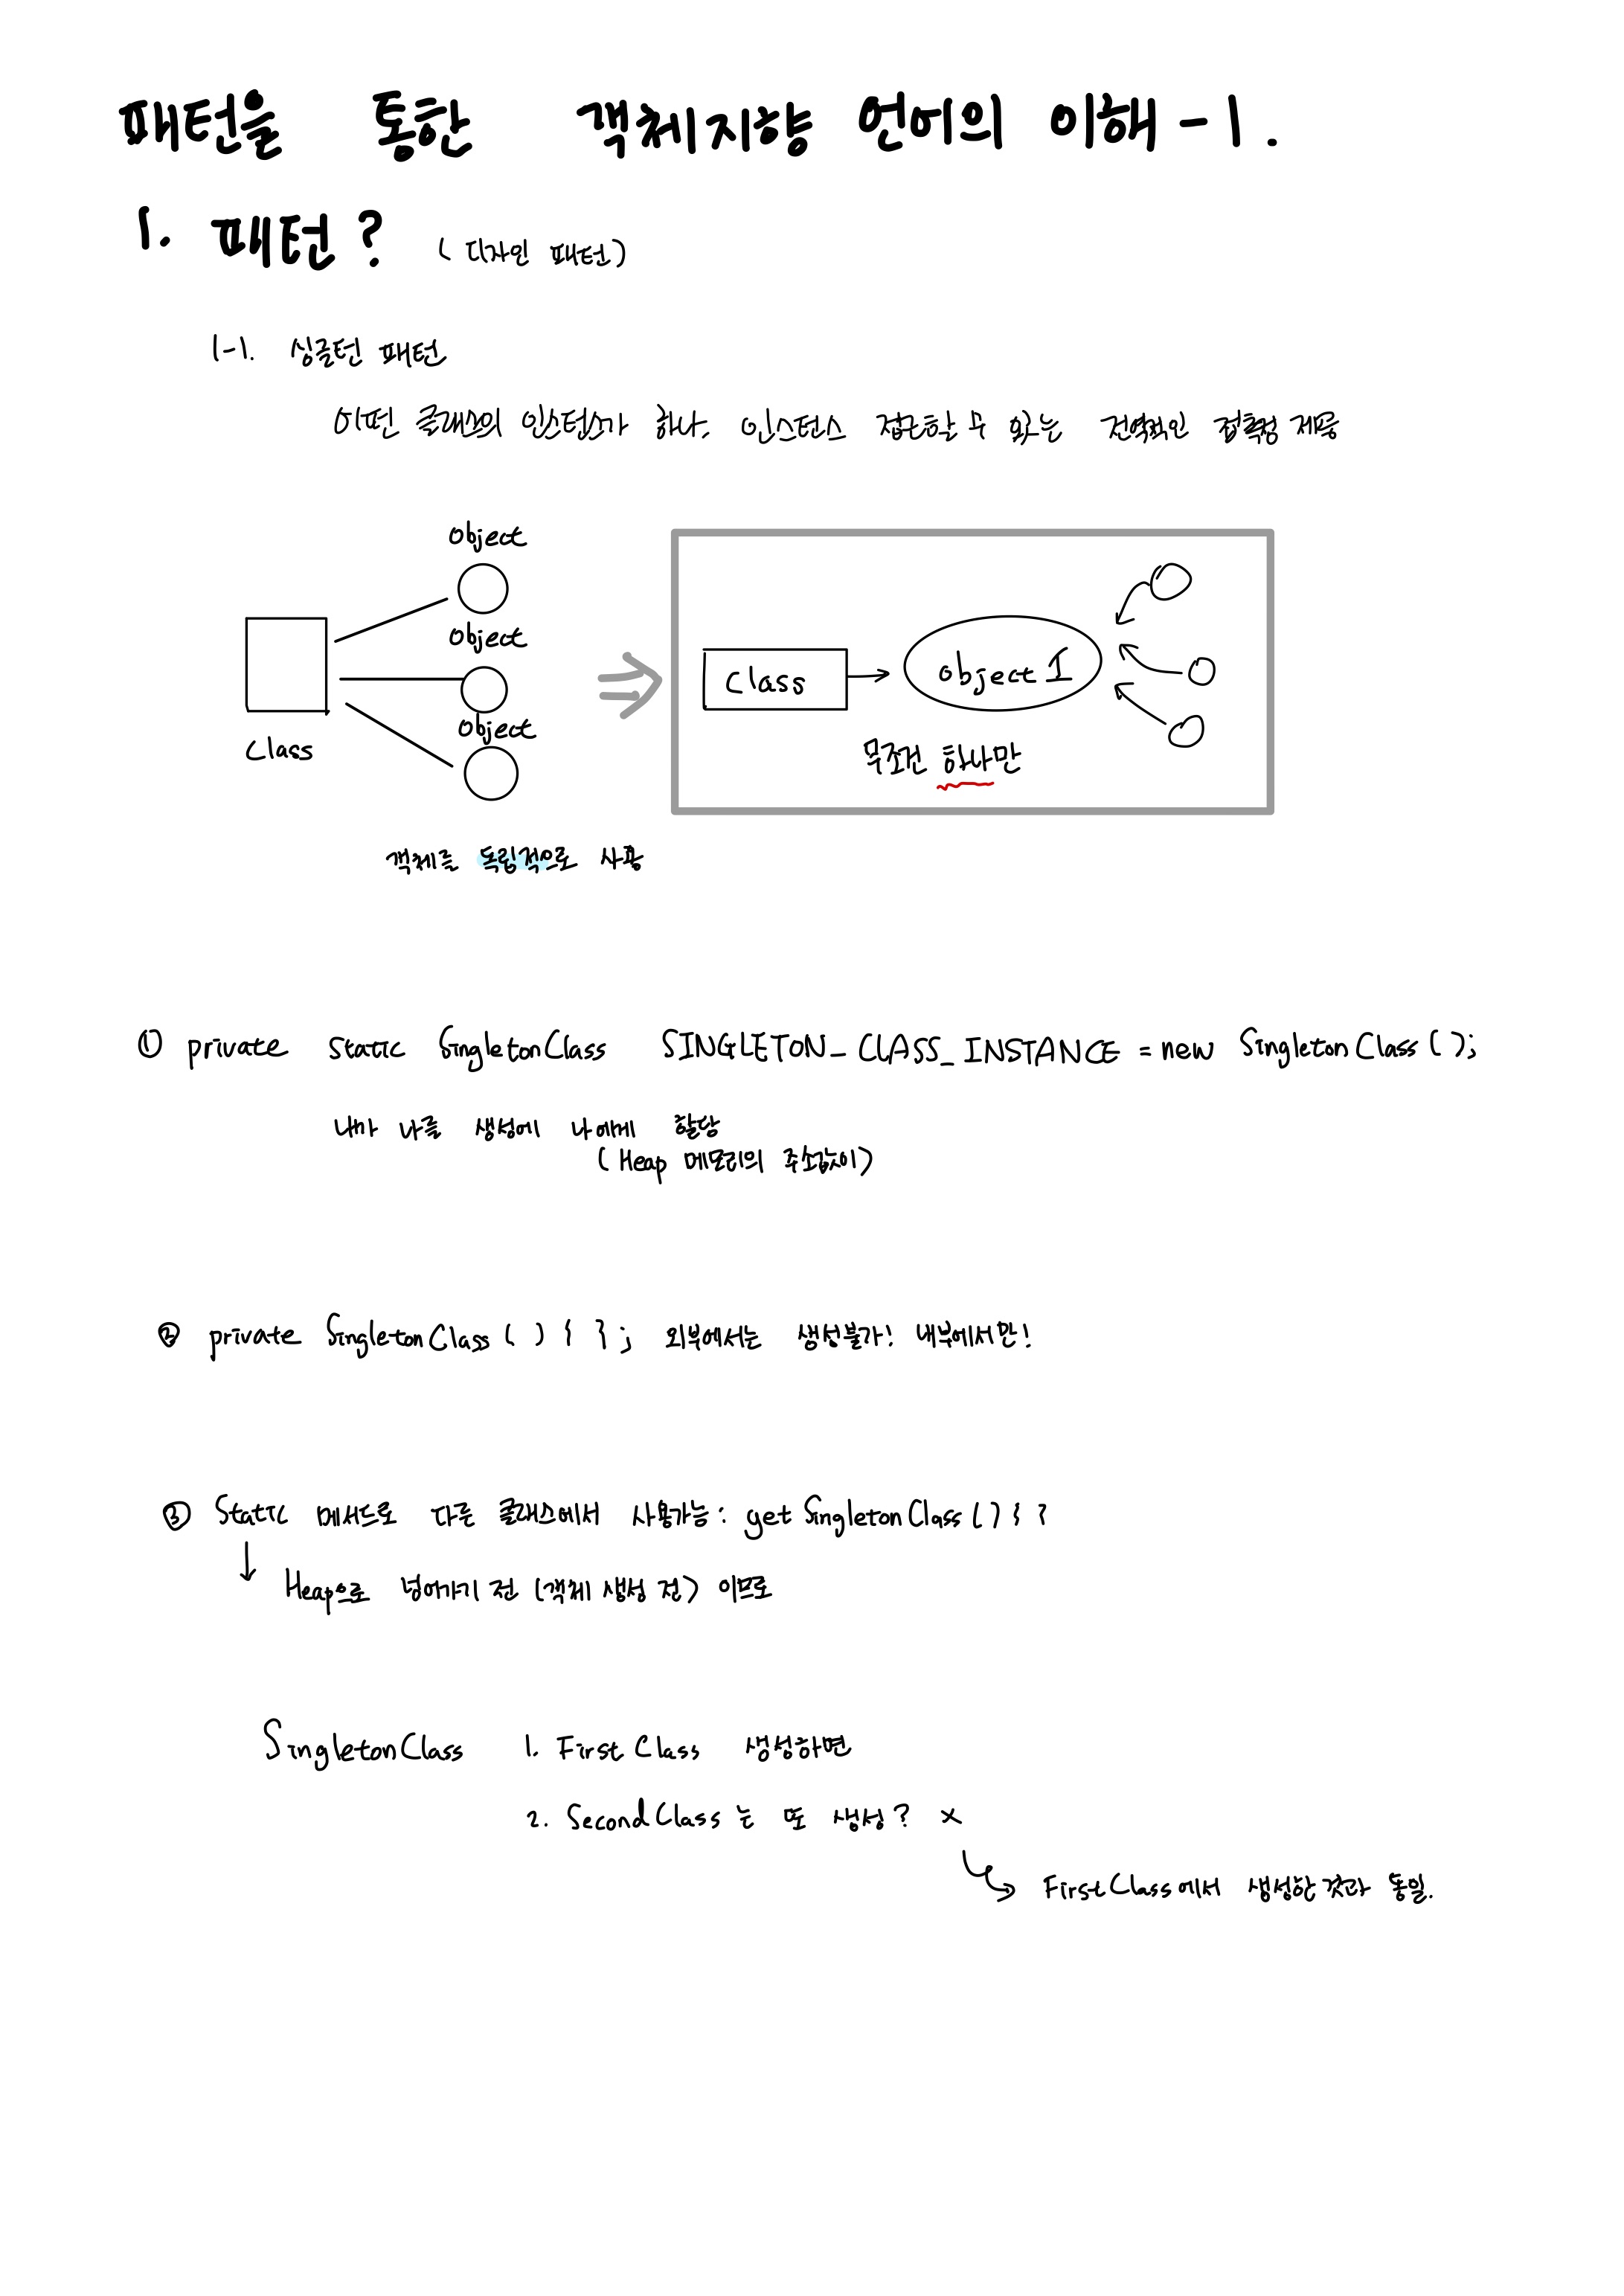 패턴을 통한 객체지향 언어의 이해 - 1.
1. 패턴? (디자인 패턴)
1-1. 싱글턴 패턴
어떤 클래스의 인스턴스가 하나. 인스턴스 접근할 수 있는 전역적인 접촉점 제공
object
object
object
class
class
object 1
무조건 하나만
객체를 독립적으로 사용
① private static SingletonClass SINGLETON_CLASS_INSTANCE = new SingletonClass();
내가 나를 생성에 나에게 할당
(Heap 메모리의 주소값이)
② private SingletonClass() { }; 외부에서는 생성불가! 내부에서만!
③ Static 메서드로 다른 클래스에서 사용가능: getSingletonClass() { }
↓
Heap으로 넘어가기 전 (객체 생성 전) 이므로
SingletonClass 1. FirstClass 생성하면
2. SecondClass는 또 생성? x
FirstClass에서 생성한 것과 동일.